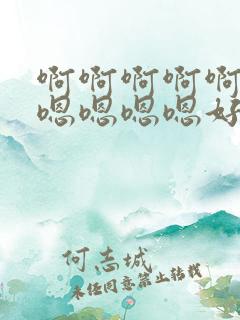 啊啊啊啊啊
嗯嗯嗯嗯好
何志城
未经同意禁止转载